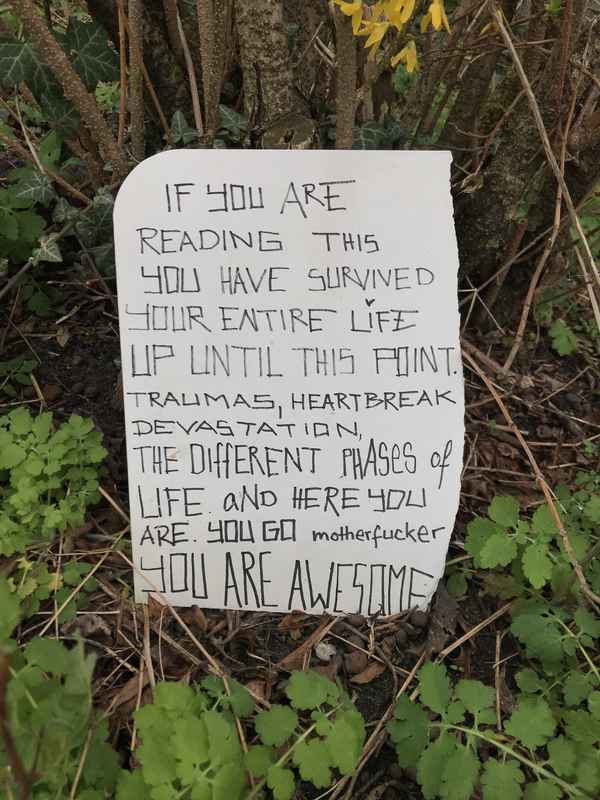 IF YOU ARE
READING THIS
YOU HAVE SURVIVED
YOUR ENTIRE LIFE
UP UNTIL THIS POINT.
TRAUMAS, HEARTBREAK
DEVASTATION,
THE DIFFERENT PHASES of
LIFE. aND HERE YOU
ARE. YOU GO motherfucker
YOU ARE AWESOME